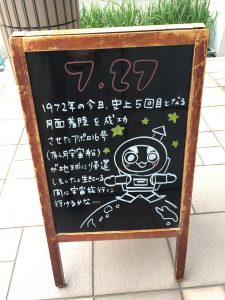 7.27
1972年の今日、史上5回目となる
月面着陸を成功
させたアポロ16号
(有人月宇宙船)
が地球に帰還
しました。生きている
間に宇宙旅行に
行けるかな…